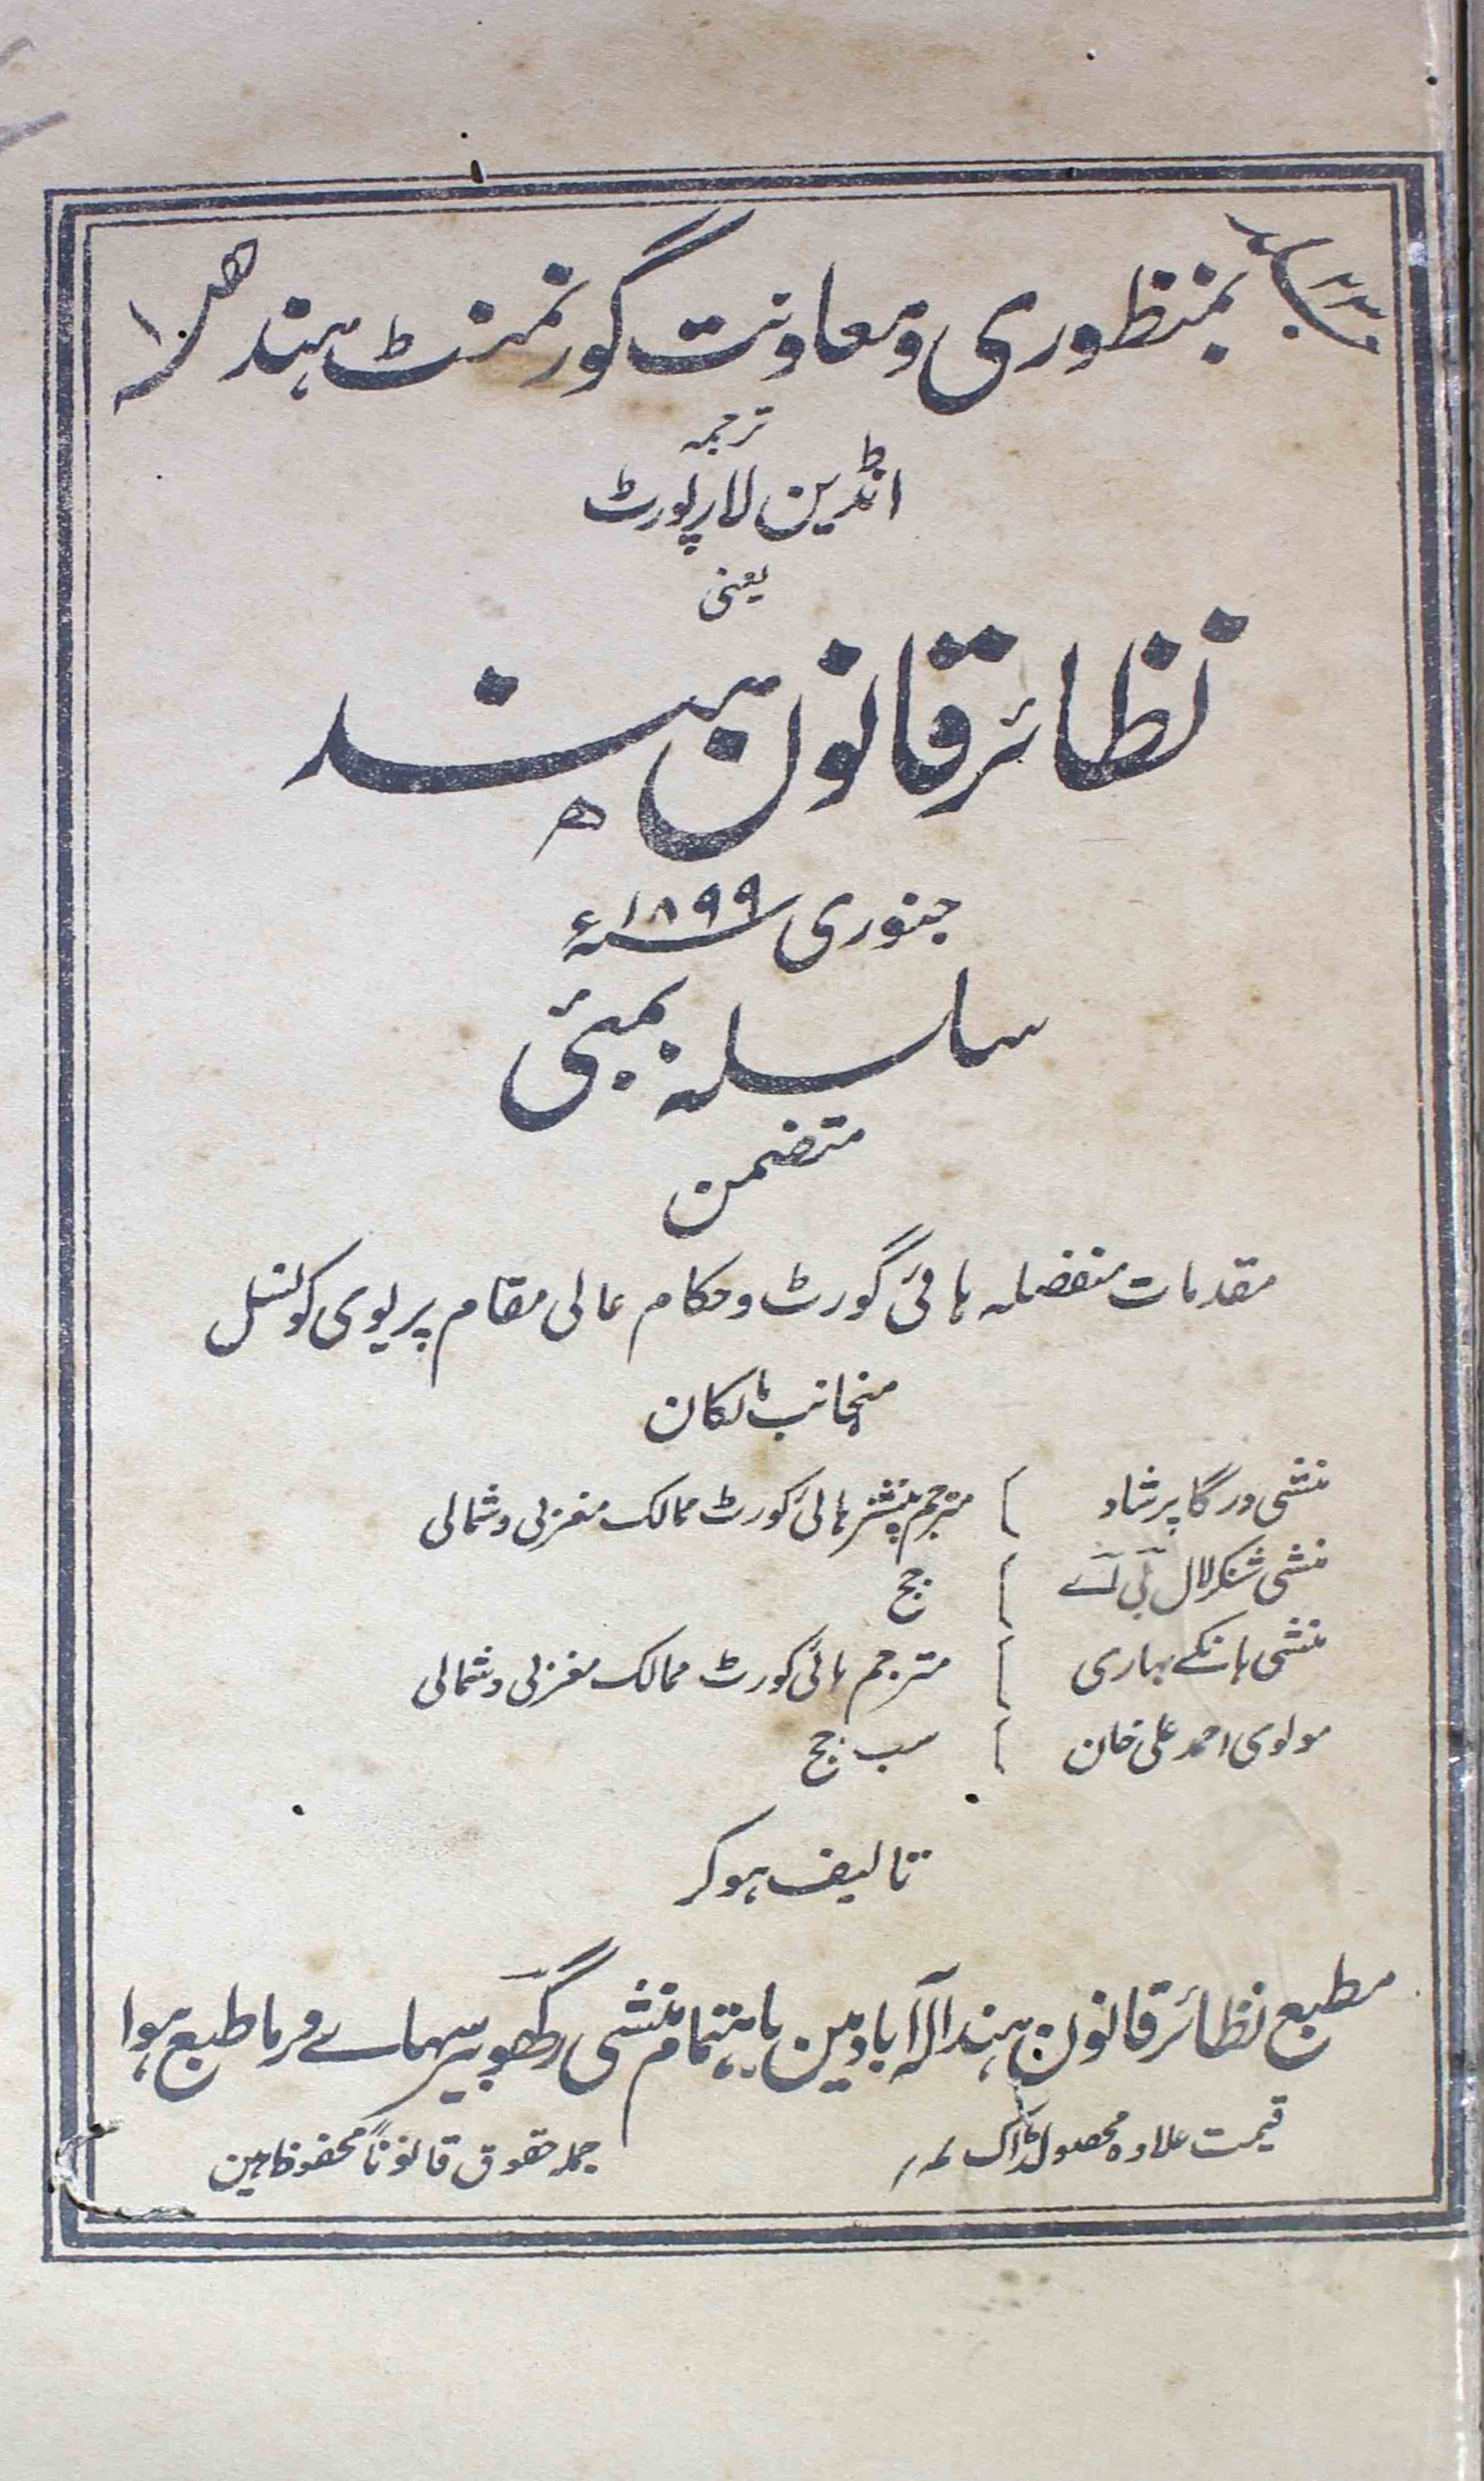 بمنظوری و معاونت گورنمنٹ ہند
ترجمہ
انڈین لارپورٹ
یعنی
نظائر قانون ہند
جنوری ۱۸۹۹ء
سلسلہ بمبئی
متضمن
مقدمات منفصلہ ہائی گورٹ و حکام عالی مقام پریوی کونسل
منجانب مالکان
منشی درگا پرشاد } مترجم پنشنر ہائی کورٹ ممالک مغربی و شمالی
منشی شنکر لال بی اے } جج
منشی بانکے بہاری } مترجم ہائی کورٹ ممالک مغربی و شمالی
مولوی احمد علی خان } سب جج
تالیف ہوکر
مطبع نظائر قانون ہند الہ آباد مین باہتمام منشی رگھوبیر سہاے ورما طبع ہوا
قیمت علاوہ محصول ڈاک
جملہ حقوق قانوناً محفوظ ہین